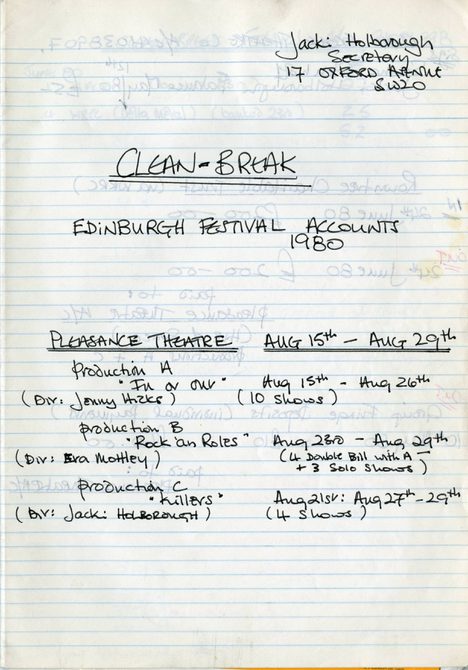 Jacki Holborough
Secretary
17 OXFORD AVENUE
SW20
CLEAN-BREAK
EDINBURGH FESTIVAL ACCOUNTS
1980
PLEASANCE THEATRE AUG 15th - AUG 29th
Production A
"In or Out" Aug 15th - Aug 26th
(Dir: Jenny Hicks) (10 shows)
Production B
"Rock 'an Roles" Aug 23rd - Aug 29th
(Dir: Eva Mottley) (4 Double Bill with A -
+ 3 Solo Shows)
Production C
"Killers" Aug 21st: Aug 27th - 29th
(Dir: Jacki HOLBOROUGH) (4 Shows)